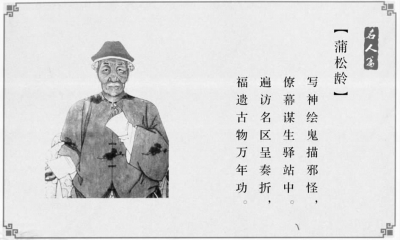 名人篇
【蒲松龄】
写神绘鬼描邪怪，
僚幕谋生驿站中。
遍访名区呈奏折，
福遗古物万年功。